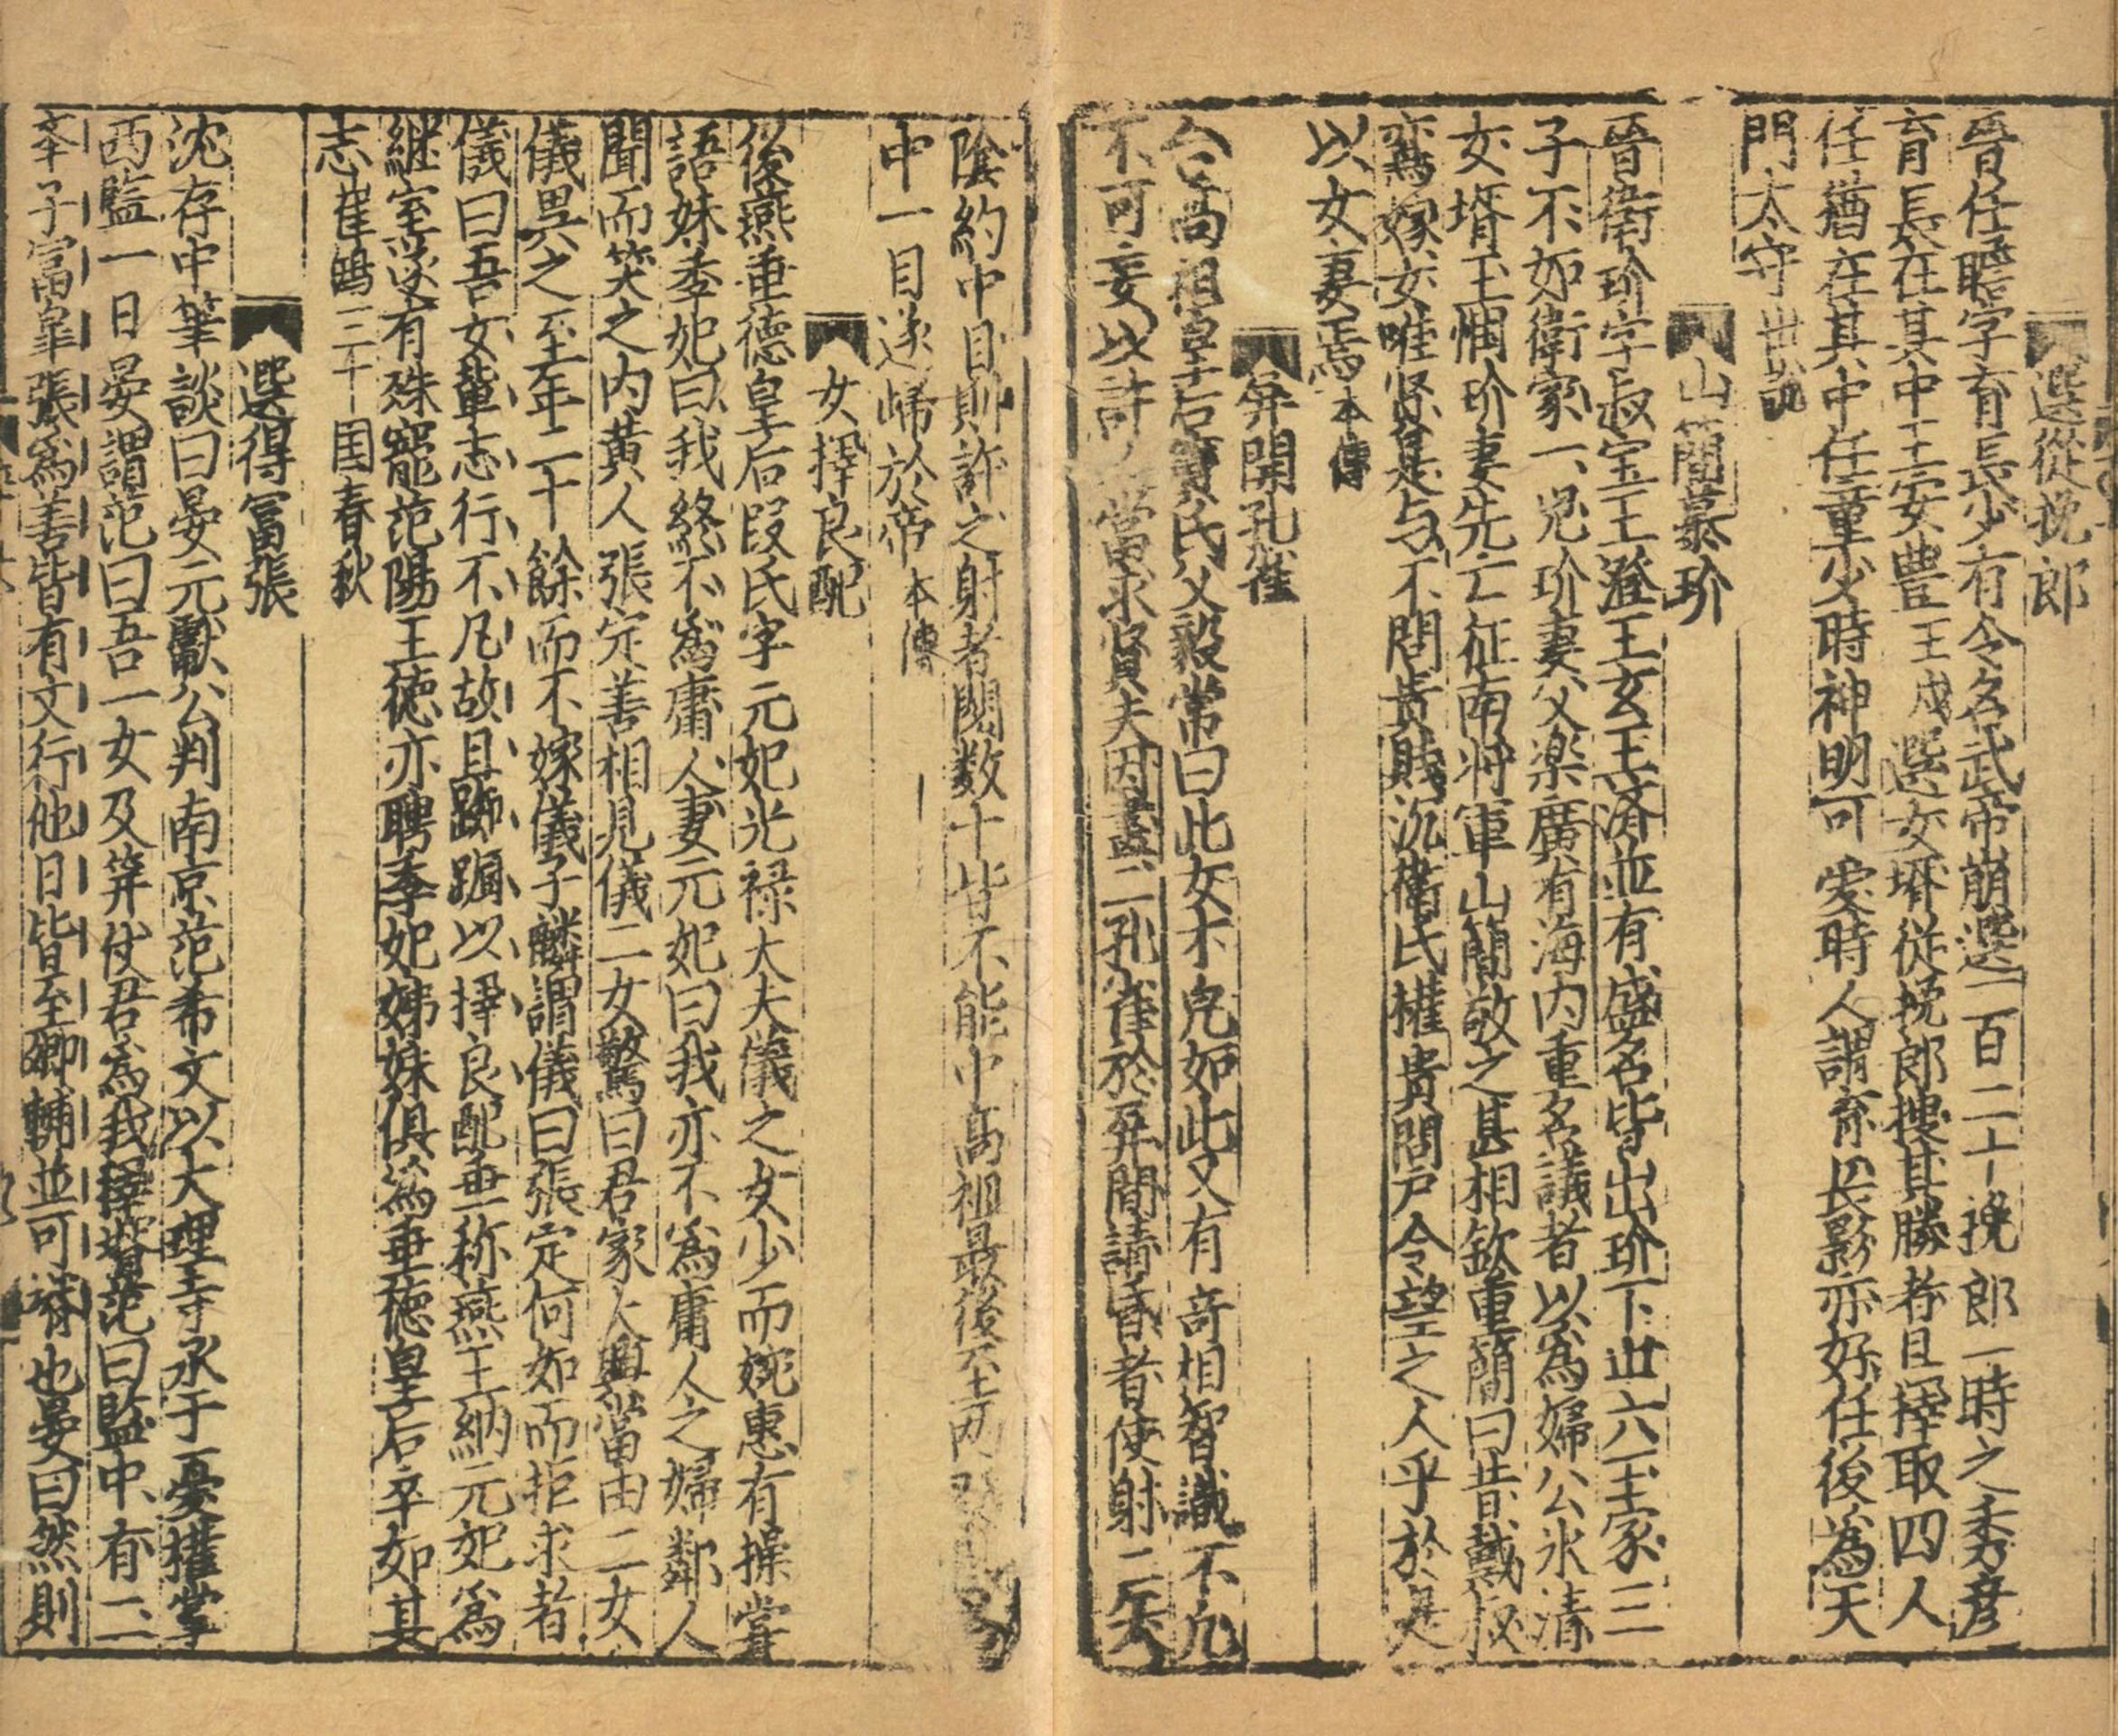 選從挽郎
晉任瞻字育長少有令名武帝崩選一百二十挽郎一時之秀彦
育長在其中王安豊王戎選女壻從挽郎搜其勝者且擇取四人
任猶在其中任童少時神明可愛時人謂育長影亦好任後為天
門太守世說
山簡慕玠
晉衛玠字叔宝王澄王玄王済並有盛名皆出玠下世六王家三
子不如衛家一児玠妻父楽廣有海内重名議者以為婦公氷清
女壻王潤玠妻先亡征南将軍山簡敬之甚相欽重簡曰昔戴叔
鸞嫁女唯賢是与不問貴賎况衛氏權貴門戸令望之人乎於是
以女妻焉本傳
屏開孔雀
高祖皇后竇氏父毅常曰此女才皃如此又有奇相智識不凡
不可妄以許人當求賢夫因畫二孔雀於屏間請昏者使射二矢
陰約中目則許之射者閱数十皆不能中高祖最後至两發各
中一目遂帰於帝本傳
女擇良配
後燕垂德皇后段氏字元妃光禄大夫儀之女少而婉惠有操嘗
語妹季妃曰我終不為庸人妻元妃曰我亦不為庸人之婦鄰人
聞而笑之内黄人張定善相見儀二女驚曰君家大興當由二女
儀異之至年二十餘而不嫁儀子麟謂儀曰張定何如而拒求者
儀曰吾女軰志行不凡故且踟蹰以擇良配垂称燕王納元妃為
継室遂有殊寵范陽王徳亦聘季妃姊妹俱為垂徳皇后卒如其
志崔鴻三十国春秋
選得冨張
沈存中筆談曰晏元獻公判南京范希文以大理寺丞于憂權掌
西監一日晏謂范曰吾一女及筓仗君為我擇壻范曰監中有二
夲子冨皐張為善皆有文行他日皆至卿輔並可壻也晏曰然則